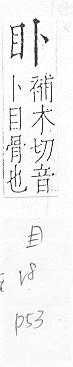 補木切音
卜目骨也
目
p53